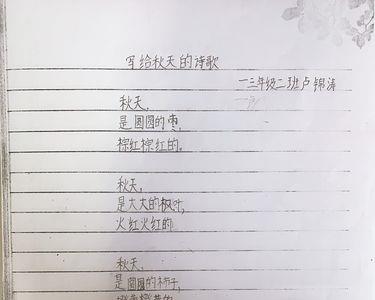 写给秋天的诗歌
一三年级二班卢锦涛
秋天，
是圆圆的枣，
棕红棕红的。
秋天，
是大大的枫叶，
火红火红的
秋天，
是圆圆的柿子，
橙黄橙黄的